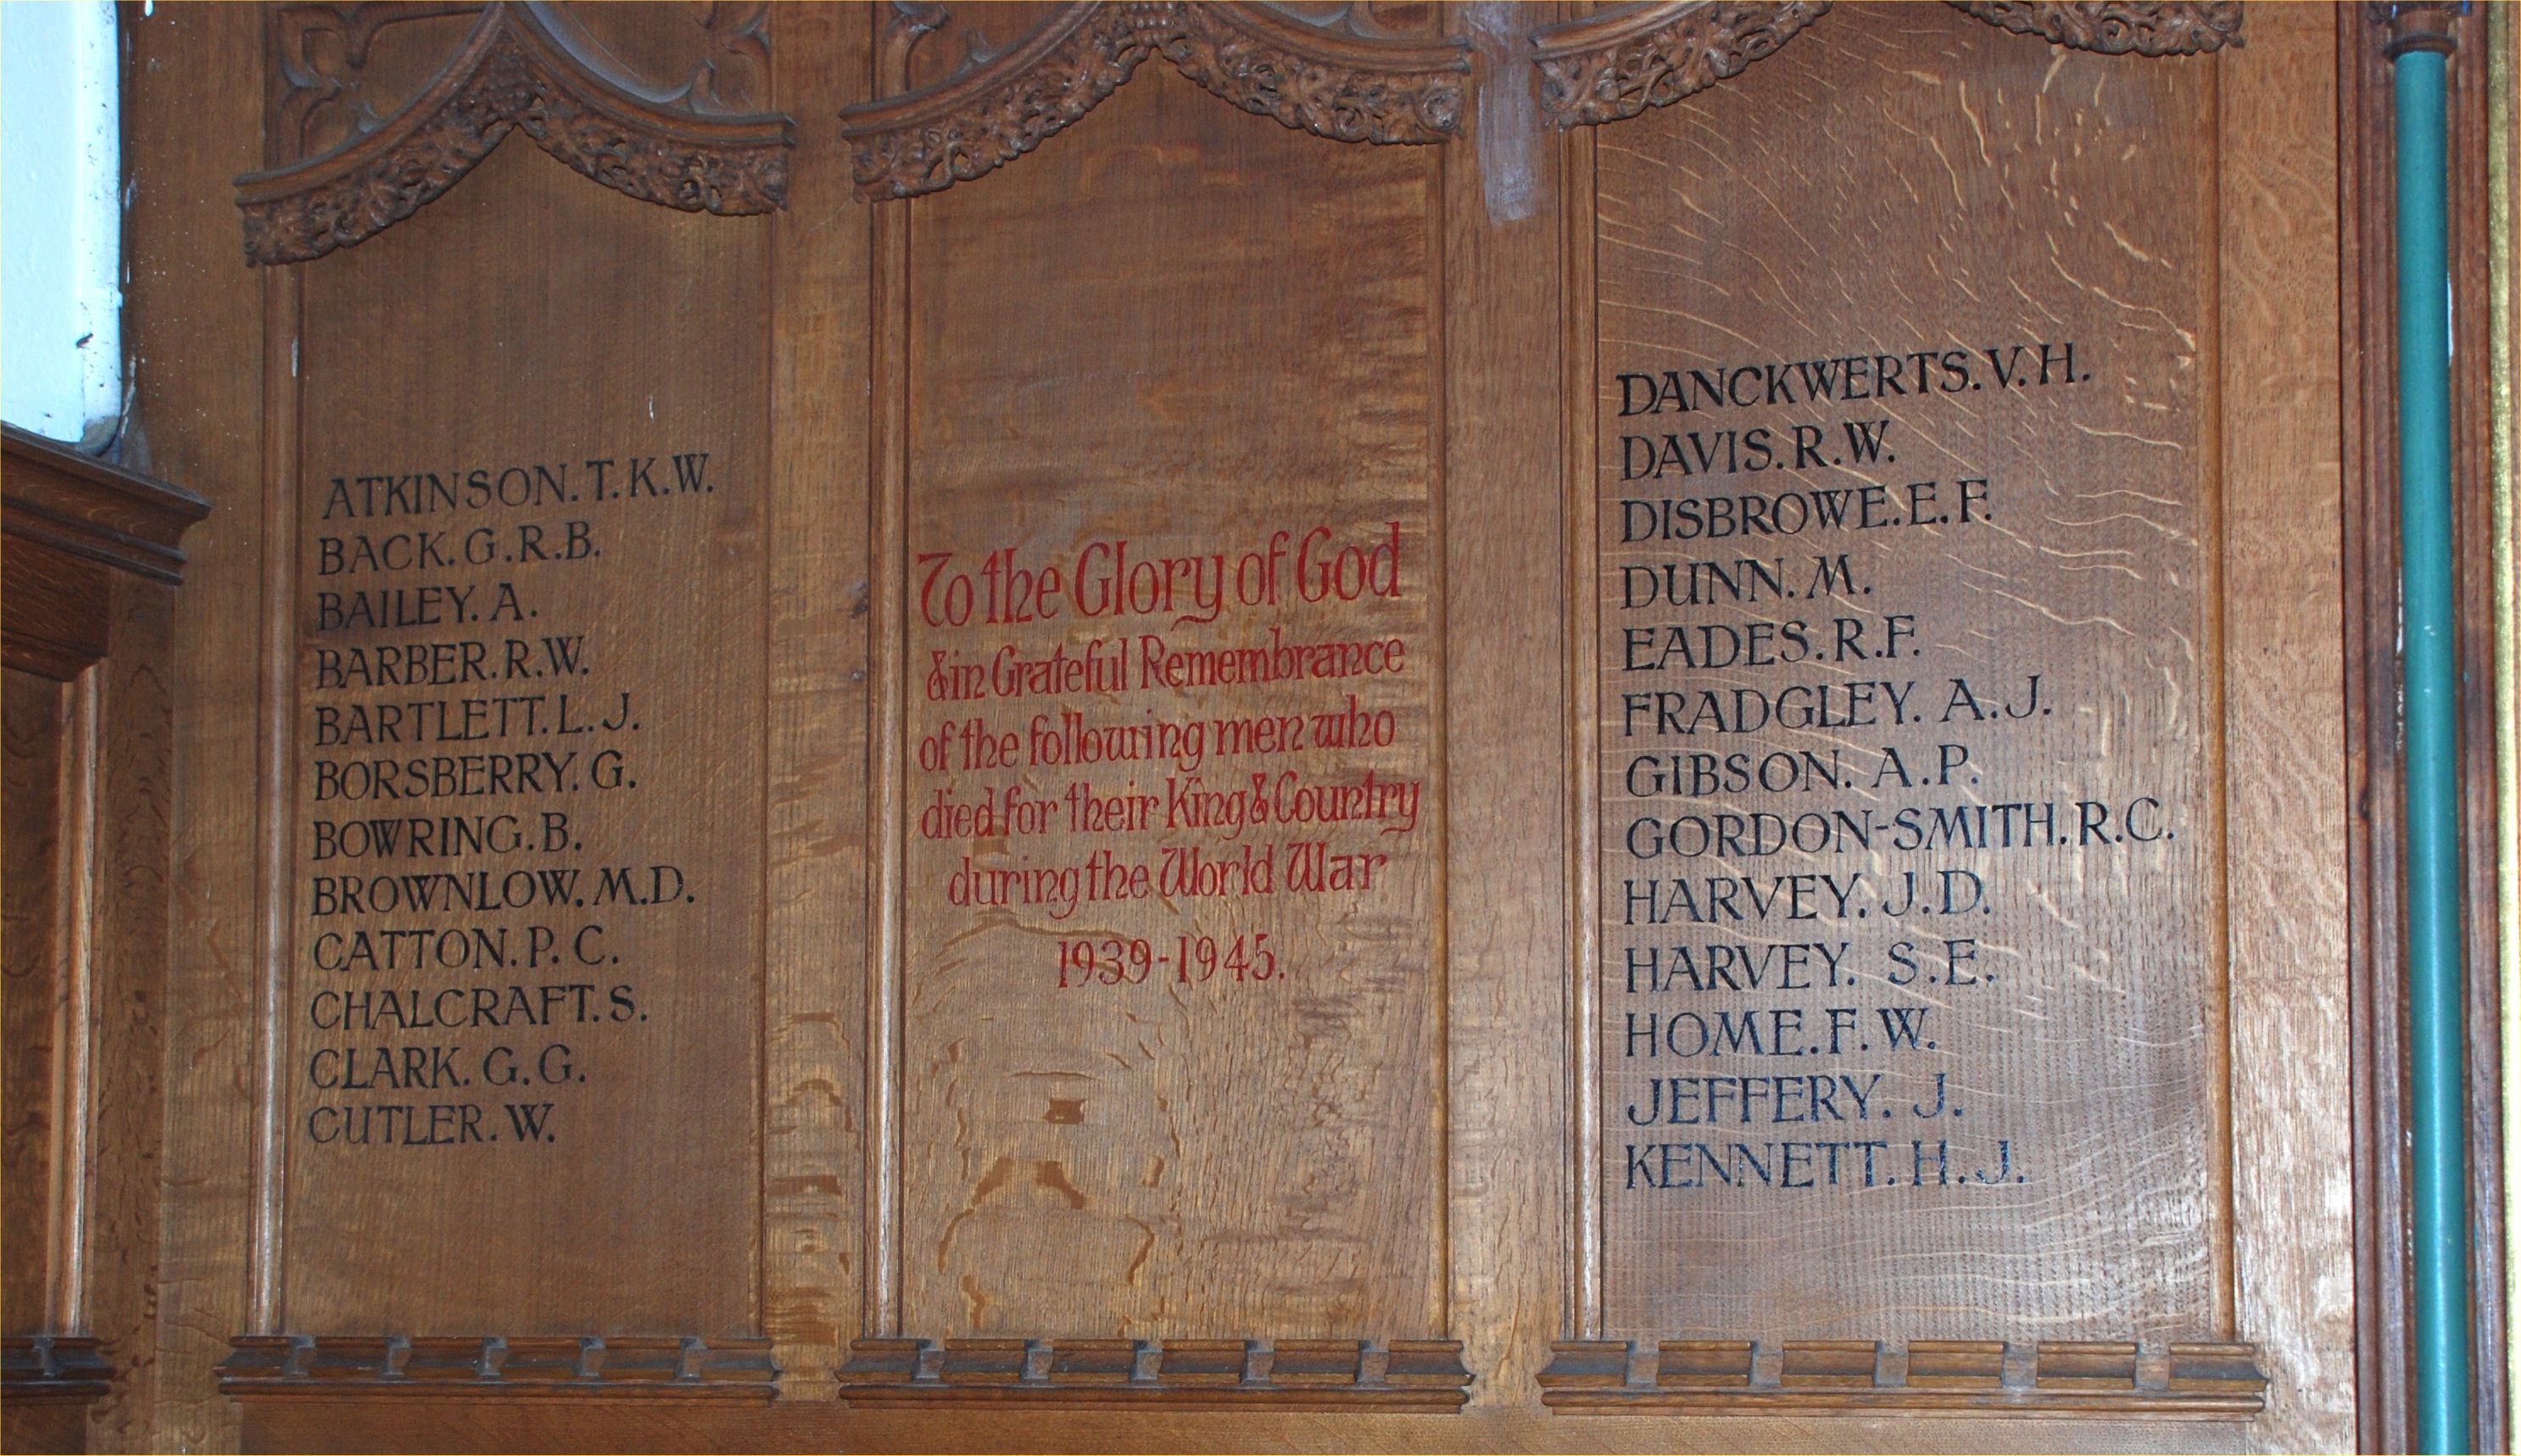 ATKINSON. T. K. W.
BACK. G. R. B.
BAILEY. A.
BARBER. R. W.
BARTLETT. L. J.
BORSBERRY. G.
BOWRING. B.
BROWNLOW. M. D.
CATTON. P. C.
CHALCRAFT. S.
CLARK. G. G.
CUTLER. W.
To the Glory of God
& in Grateful Remembrance
of the following men who
died for their King & Country
during the World War
1939-1945.
DANCKWERTS. V. H.
DAVIS. R. W.
DISBROWE. E. F.
DUNN. M.
EADES. R. F.
FRADGLEY. A. J.
GIBSON. A. P.
GORDON-SMITH. R. C.
HARVEY. J. D.
HARVEY. S. E.
HOME. F. W.
JEFFERY. J.
KENNETT. H. J.